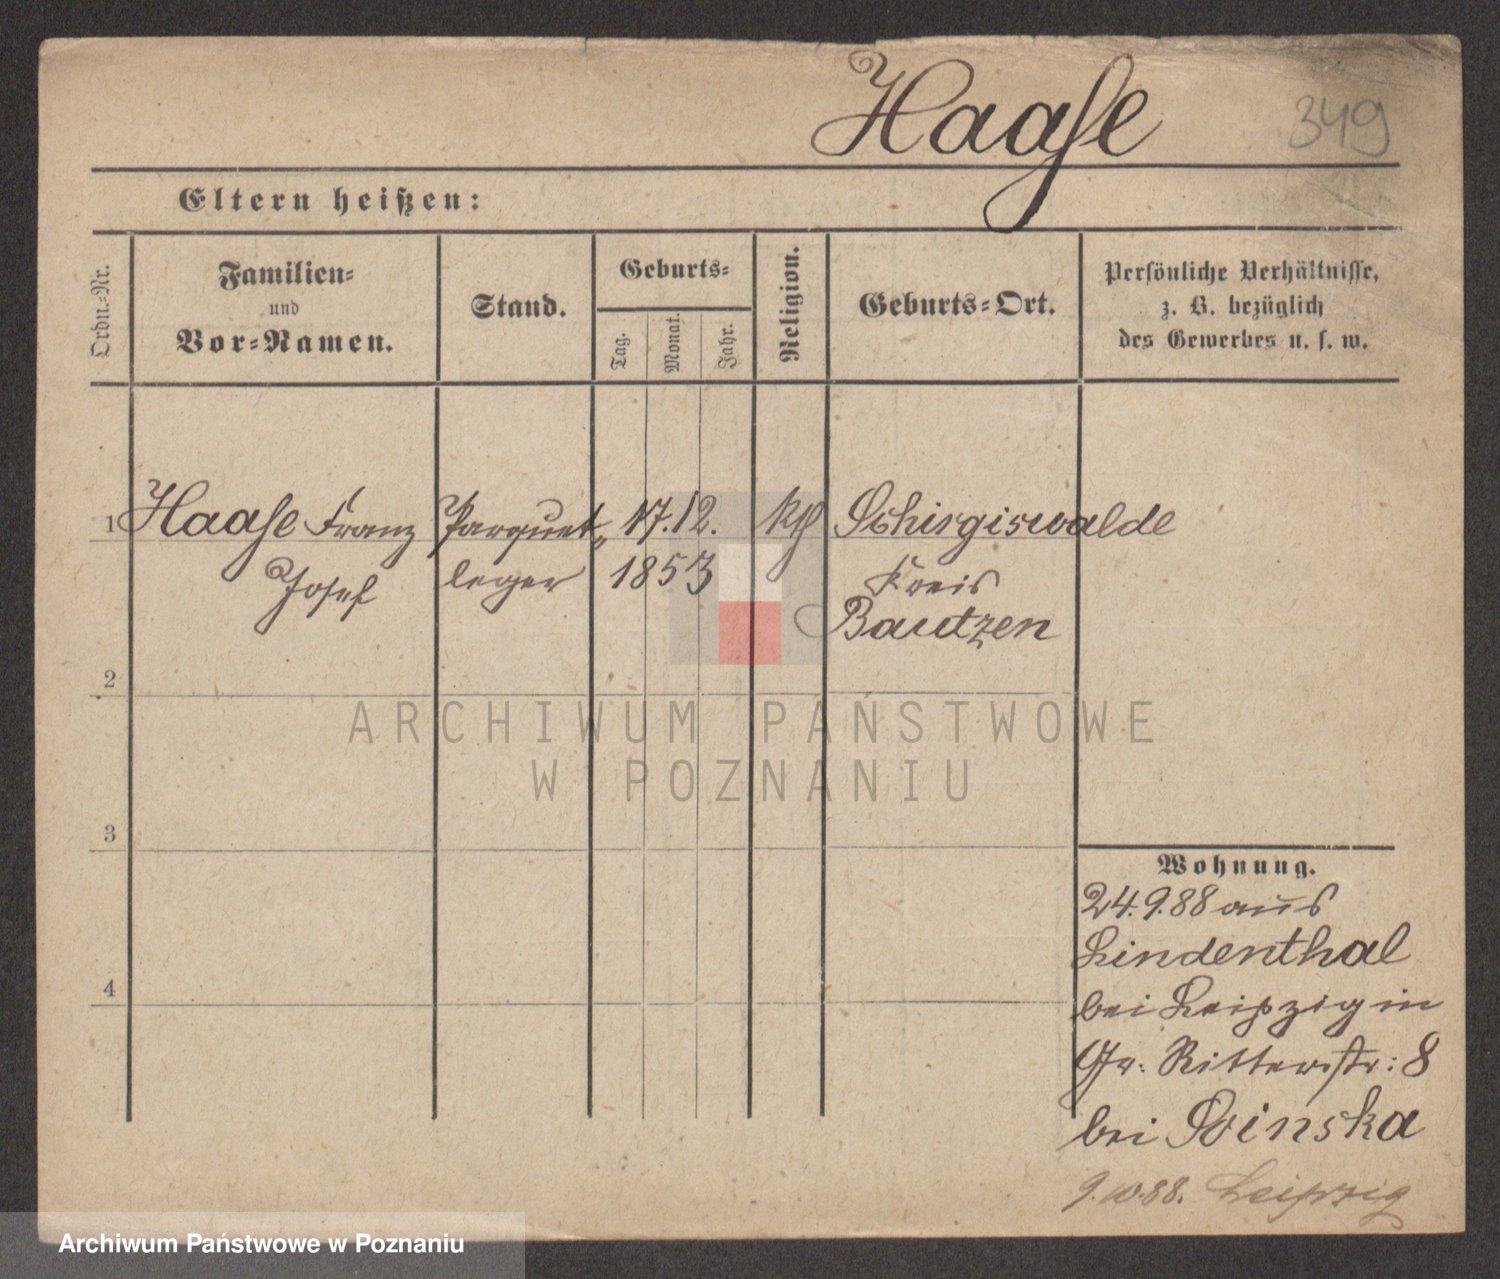 Haaſe 349
Eltern heißen:
Ordn.-Nr.
Familien-
und
Vor-Namen.
Stand.
Geburts-
Tag.
Monat.
Jahr.
Religion.
Geburts-Ort.
Persönliche Verhältnisse,
z. B. bezüglich
des Gewerbes u. s. w.
1 Haaſe Franz Parquet„ 17.12. kth Schirgiswalde
Josef leger 1853 Kreis
Bautzen
2
3
4
Wohnung.
24.9.88 aus
Lindenthal
bei Leipzig in
Gr. Ritterstr: 8
bei
9.10.88. Leipzig
ARCHIWUM PAŃSTWOWE
W POZNANIU
Archiwum Państwowe w Poznaniu